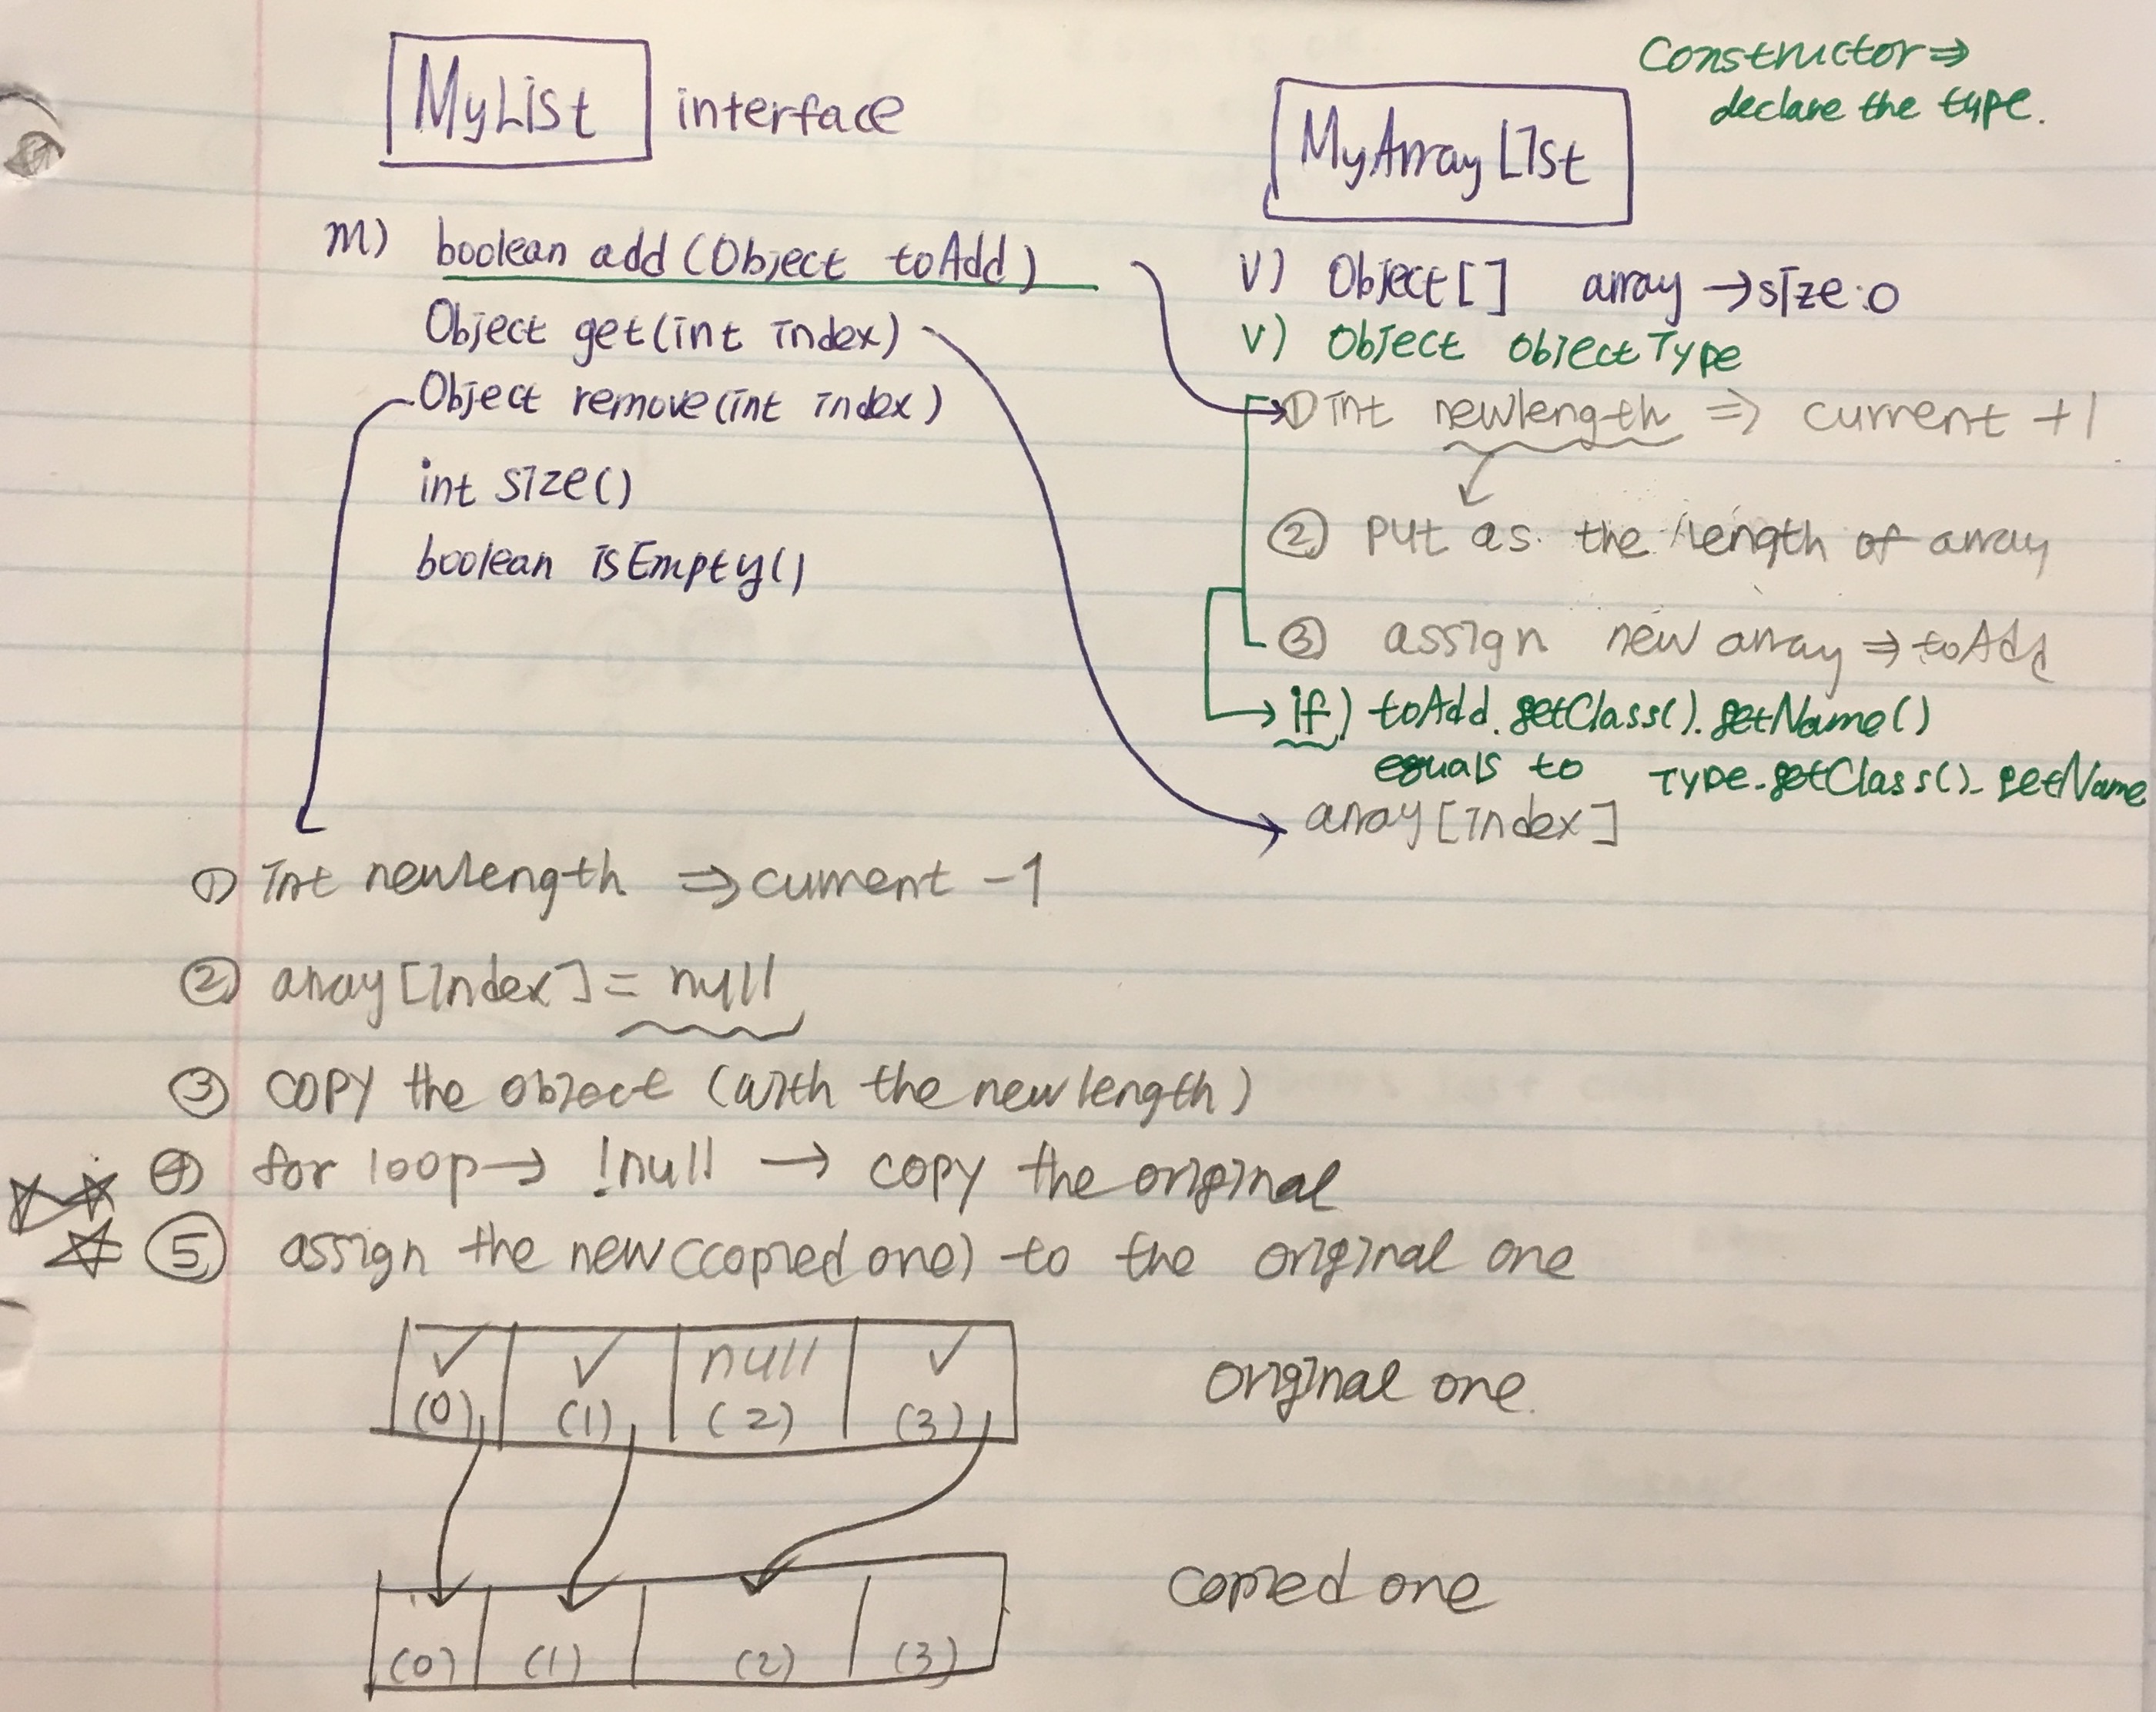 MyList interface
m) boolean add(Object toAdd)
Object get(int index)
Object remove(int index)
int size()
boolean isEmpty()
Constructor ⇒
declare the type.
MyArrayList
v) Object[] array → size:0
v) Object objectType
① int newlength ⇒ current +1
② put as the length of array
③ assign new array ⇒ toAdd
→ if) toAdd.getClass().getName()
equals to Type.getClass().getName
array[index]
① int newlength ⇒ current -1
② array[index] = null
③ copy the object (with the newlength)
④ for loop → !null → copy the original
⑤ assign the new(copied one) to the original one
✓ ✓ null ✓
(0) (1) (2) (3)
original one.
(0) (1) (2) (3)
copied one